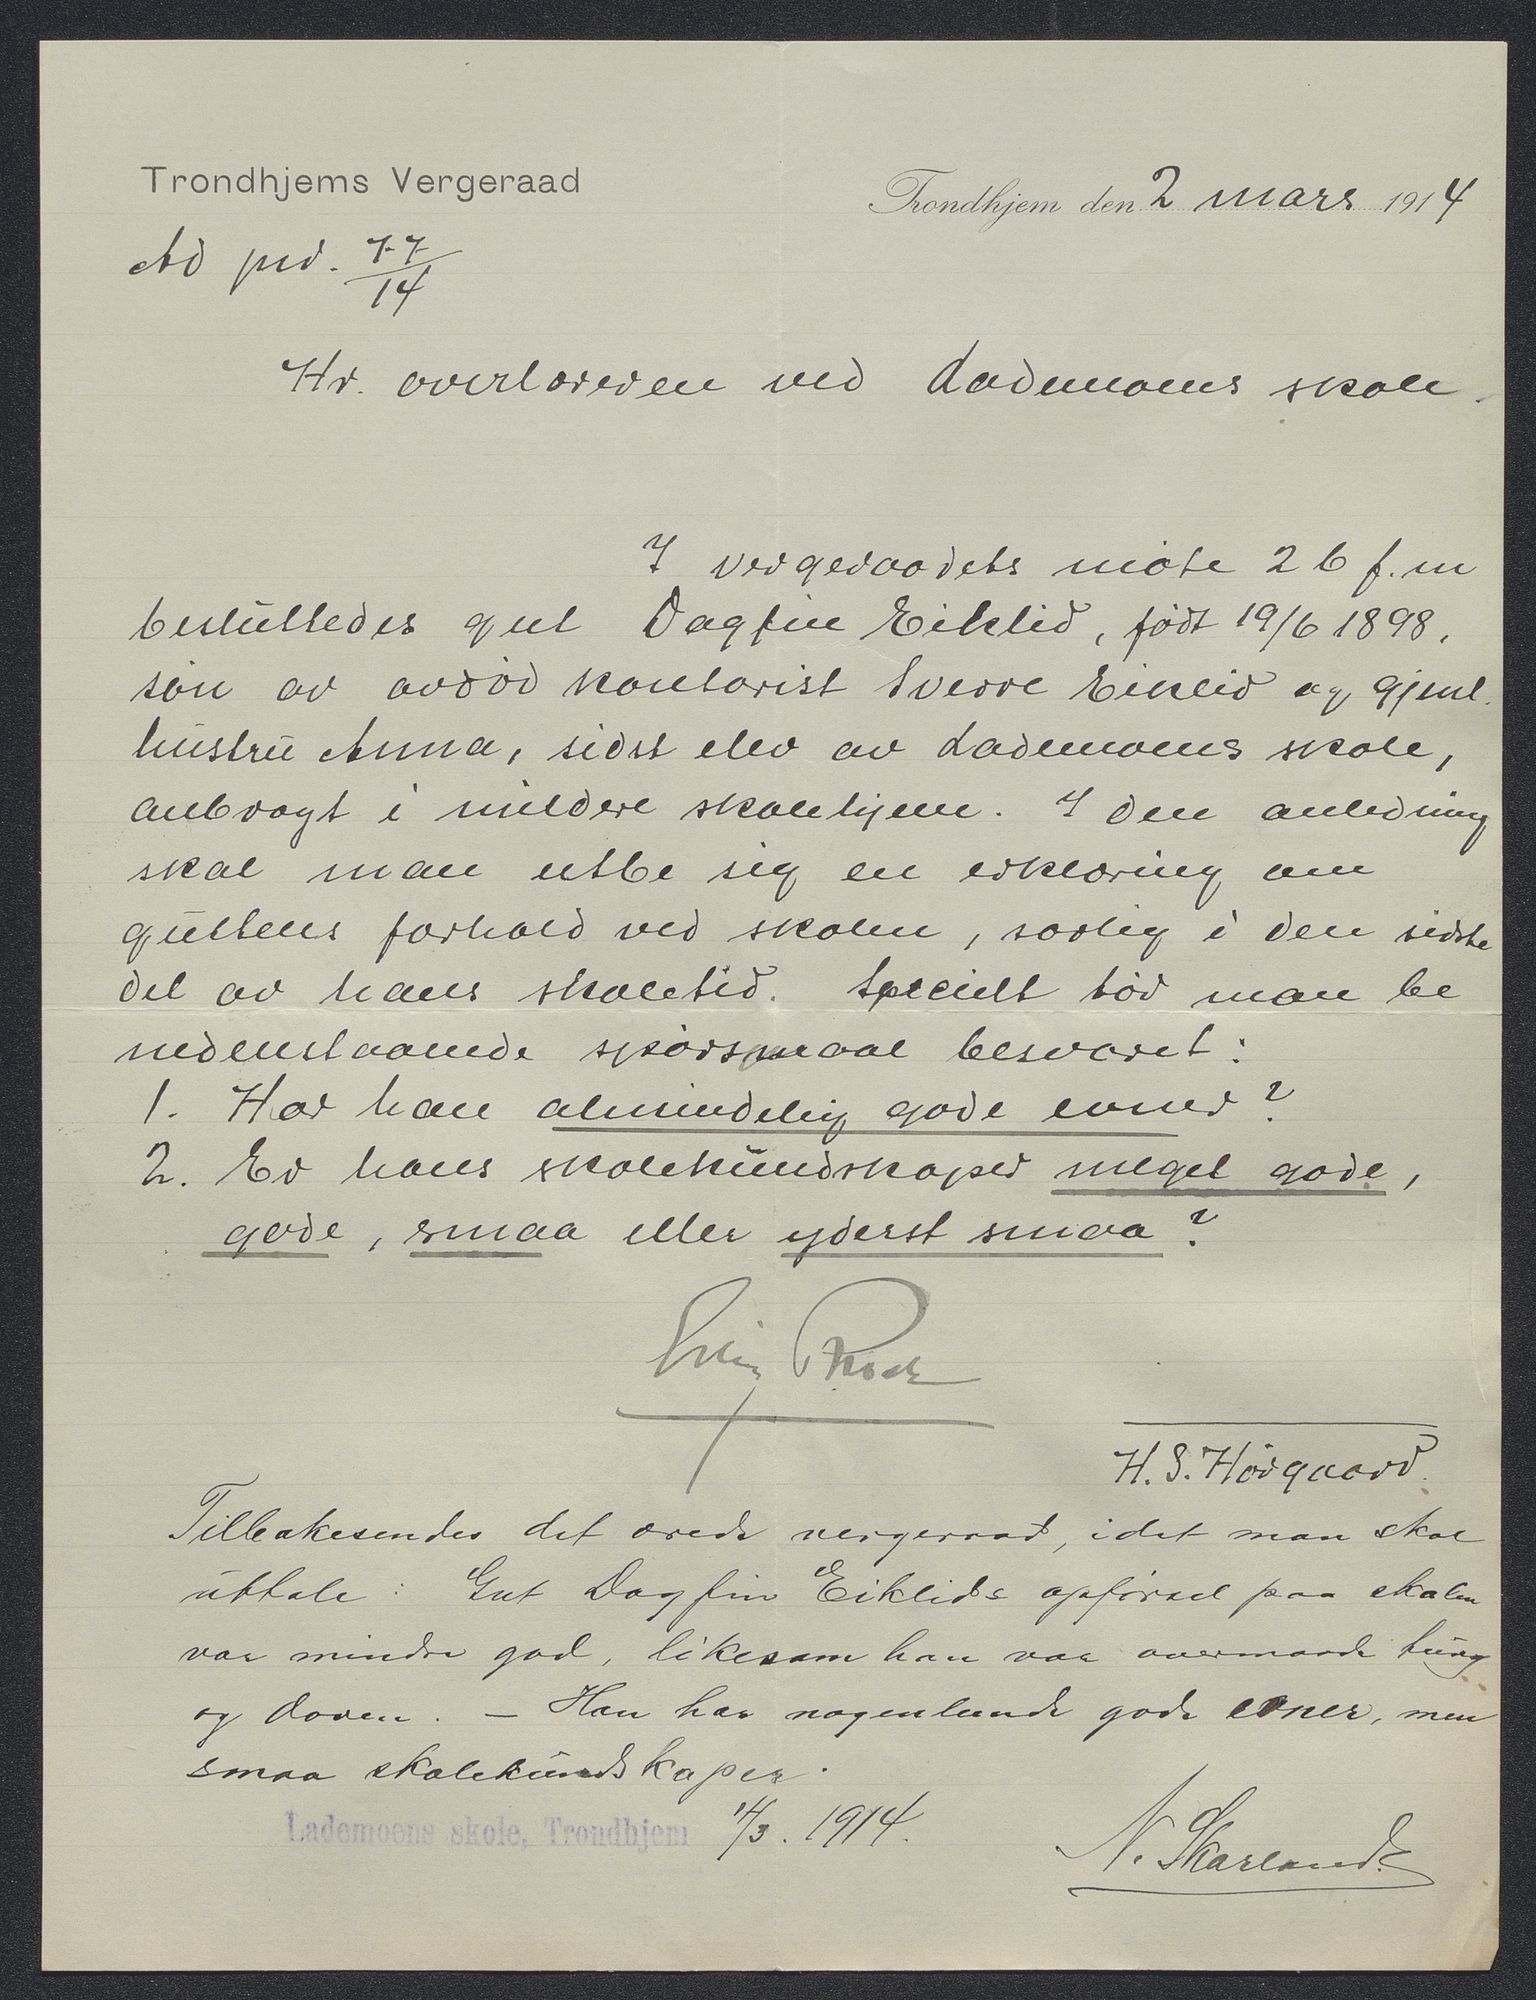 Trondhjems Vergeraad
Trondhjem den 2 mars 1914
Ad prd. 77/14
Hr. overlæreren ved Lademoens skole.
I vergeraadets møte 26 f. m
besluttedes gut Dagfin Eiklid, født 19/6 1898,
søn av avdød kontorist Sverre Eiklid og gjenl.
hustru Anna, sidst elev av Lademoens skole,
anbragt i mildere skolehjem. I den anledning
skal man utbe sig en erklæring om
guttens forhold ved skolen, særlig i den sidste
del av hans skoletid. Specielt tør man be
nedenstaaende spørsmaal besvaret:
1. Har han almindelig gode evner?
2. Er hans skolekundskaper meget gode,
gode, smaa eller yderst smaa?
H. S. Hørgaard.
Tilbakesendes det ærede vergeraad, idet man skal
uttale: Gut Dagfin Eiklids opførsel paa skolen
var mindre god, likesom han var overmaade tung
og doven. – Han har nogenlunde gode evner, men
smaa skolekundskaper.
Lademoens skole, Trondhjem 14/3. 1914.
N. Skarland.